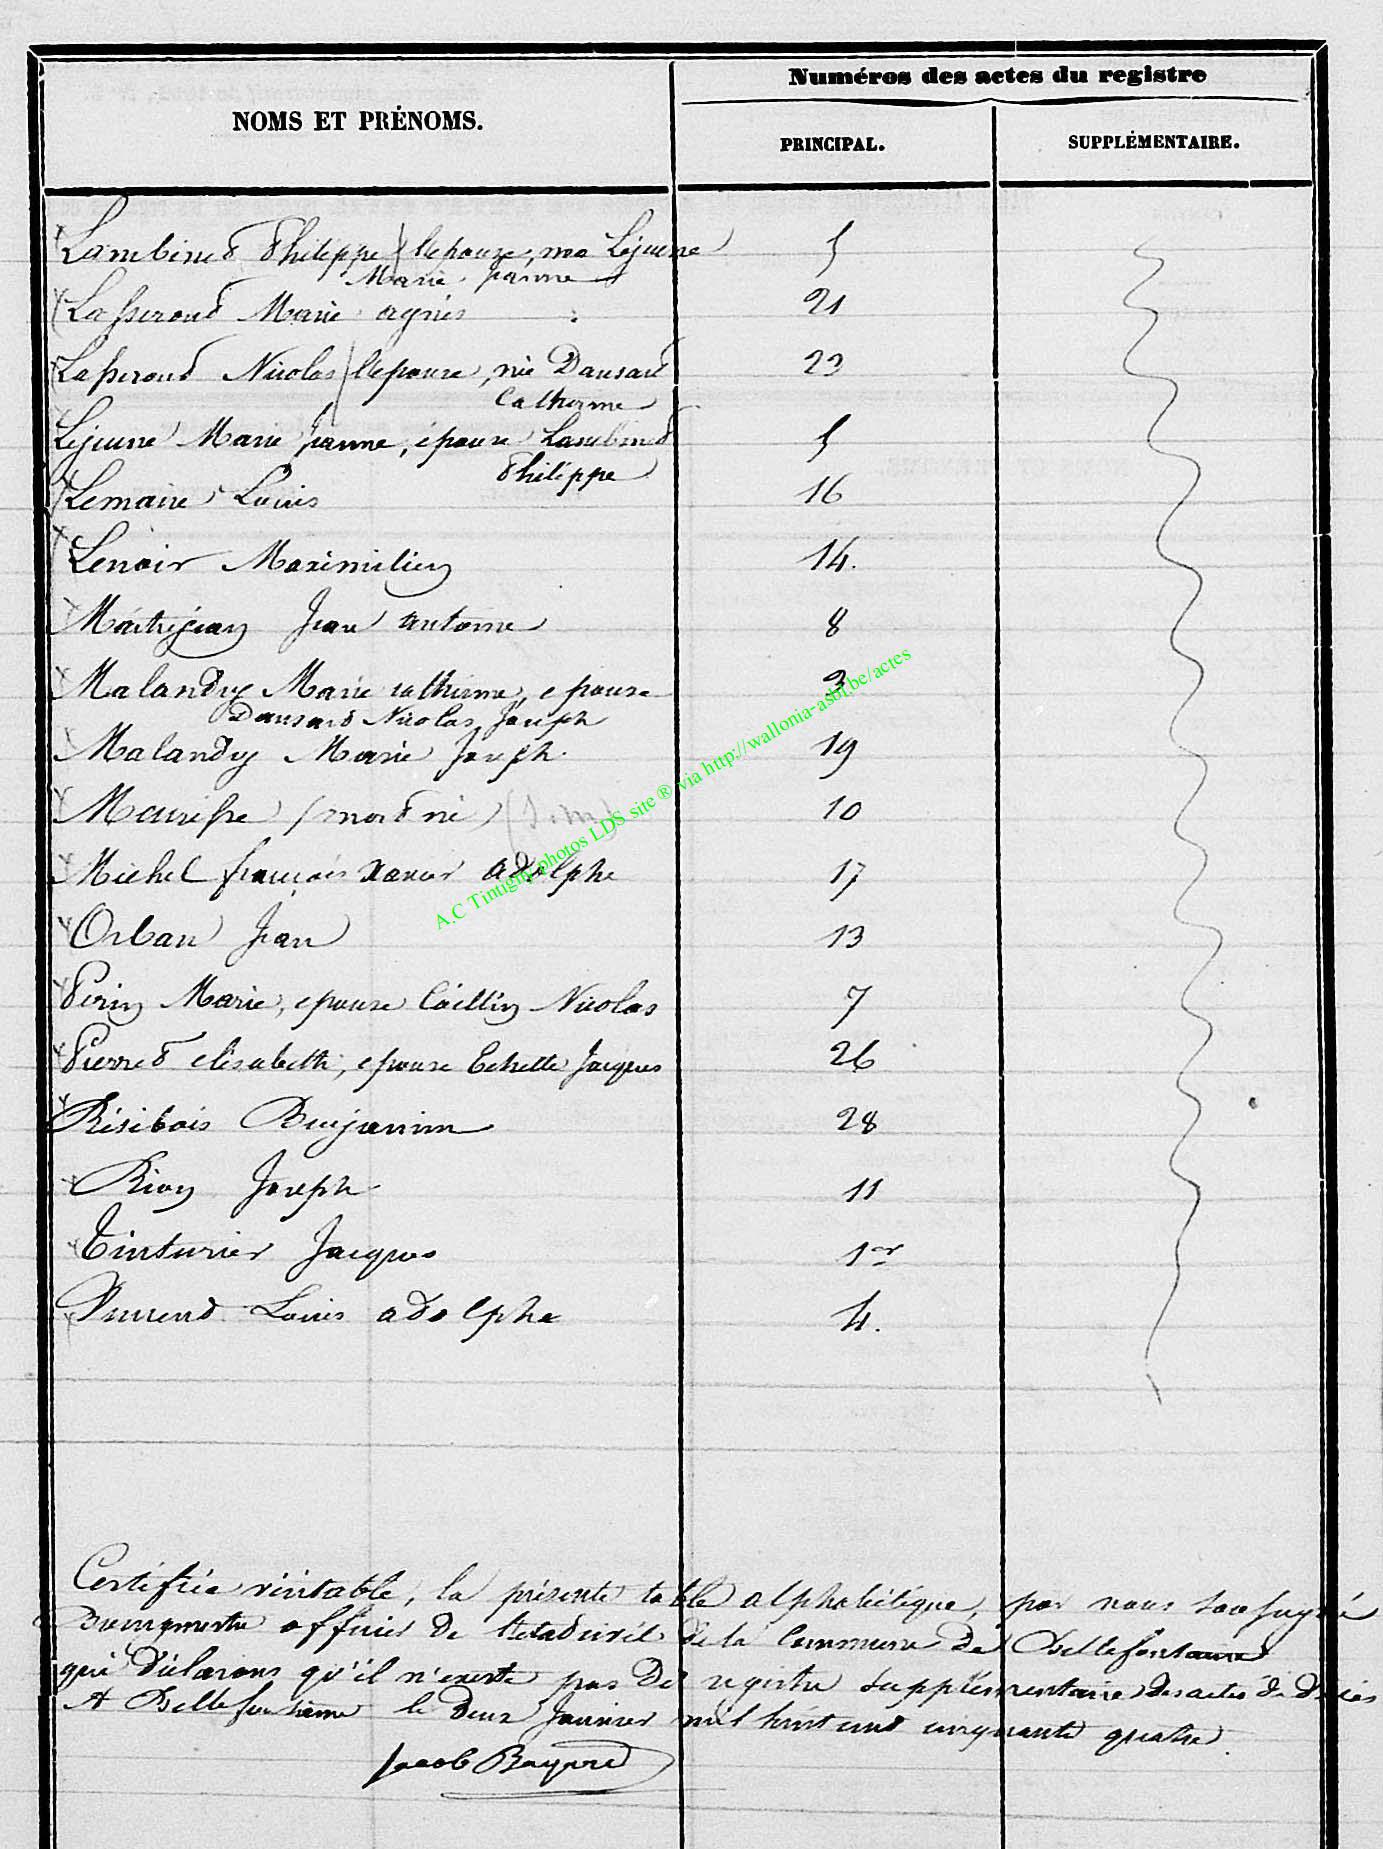 Numéros des actes du registre
NOMS ET PRÉNOMS.
PRINCIPAL.
SUPPLÉMENTAIRE.
Lambinet Philippe / l'épouse, née Lejeune 5
Marie Jeanne
Lasseront Marie agnès 21
Lasseront Nicolas / l'épouse, née Dansart 23
Catherine
Lejeune Marie Jeanne, épouse Lambinet 5
Philippe
Lemaire Louis 16
Lenoir Maximilien 14.
Maitrejean Jean antoine 8
Malandry Marie catherine, epouse 3
Dansard Nicolas Joseph
Malandry Marie Joseph 19
Maurisse (mort né) 10
Michel françois xavier adolphe 17
Orban Jean 13
Perin Marie, epouse Nicolas 7
Pierret elisabeth, epouse Jacques 26
Résibois Benjamin 28
Rion Joseph 11
Tinturier Jacques 1er
Louis adolphe 4.
Certifiée véritable, la présente table alphabétique, par nous soussigné
Bourgmestre officier de l'état civil de la commune de Bellefontaine
qui déclarons qu'il n'existe pas de registre supplémentaire des actes de décès
A Bellefontaine le deux Janvier mil huit cent cinquante quatre.
Jacob
A.C Tintigny photos LDS site ® via http://wallonia-asbl.be/actes